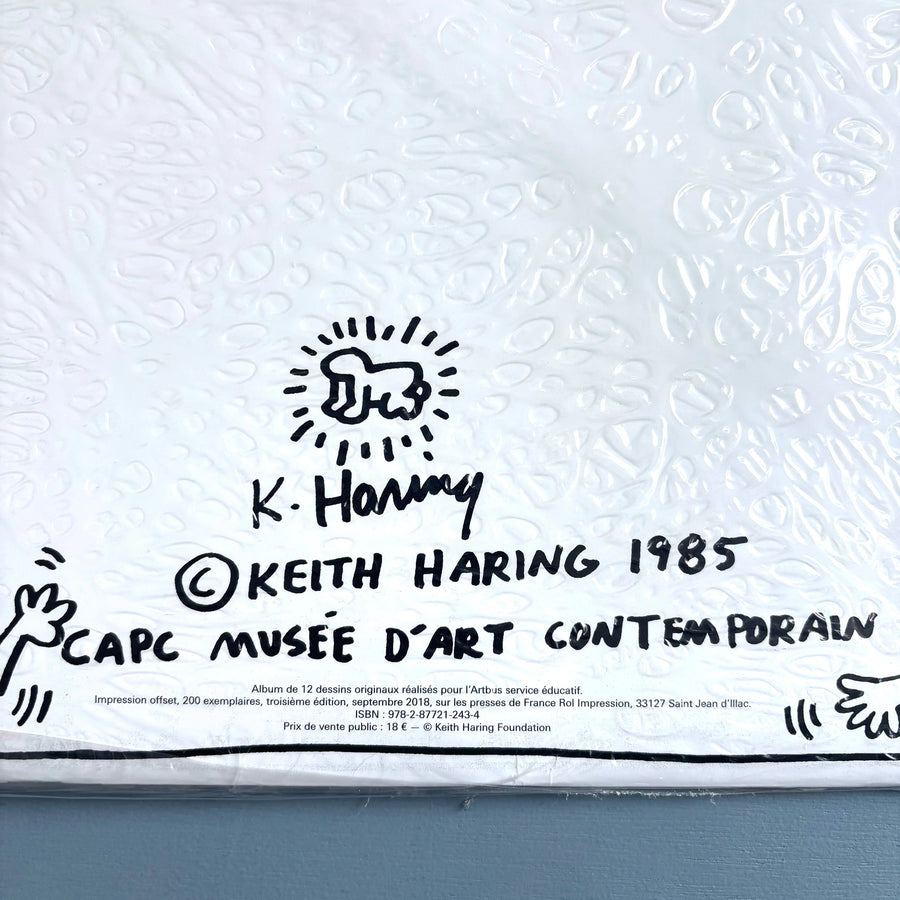 K. Haring
© KEITH HARING 1985
CAPC MUSÉE D'ART CONTEMPORAIN
Album de 12 dessins originaux réalisés pour l'Artbus service éducatif.
Impression offset, 200 exemplaires, troisième édition, septembre 2018, sur les presses de France Rol Impression, 33127 Saint Jean d'Illac.
ISBN : 978-2-87721-243-4
Prix de vente public : 18 € — © Keith Haring Foundation